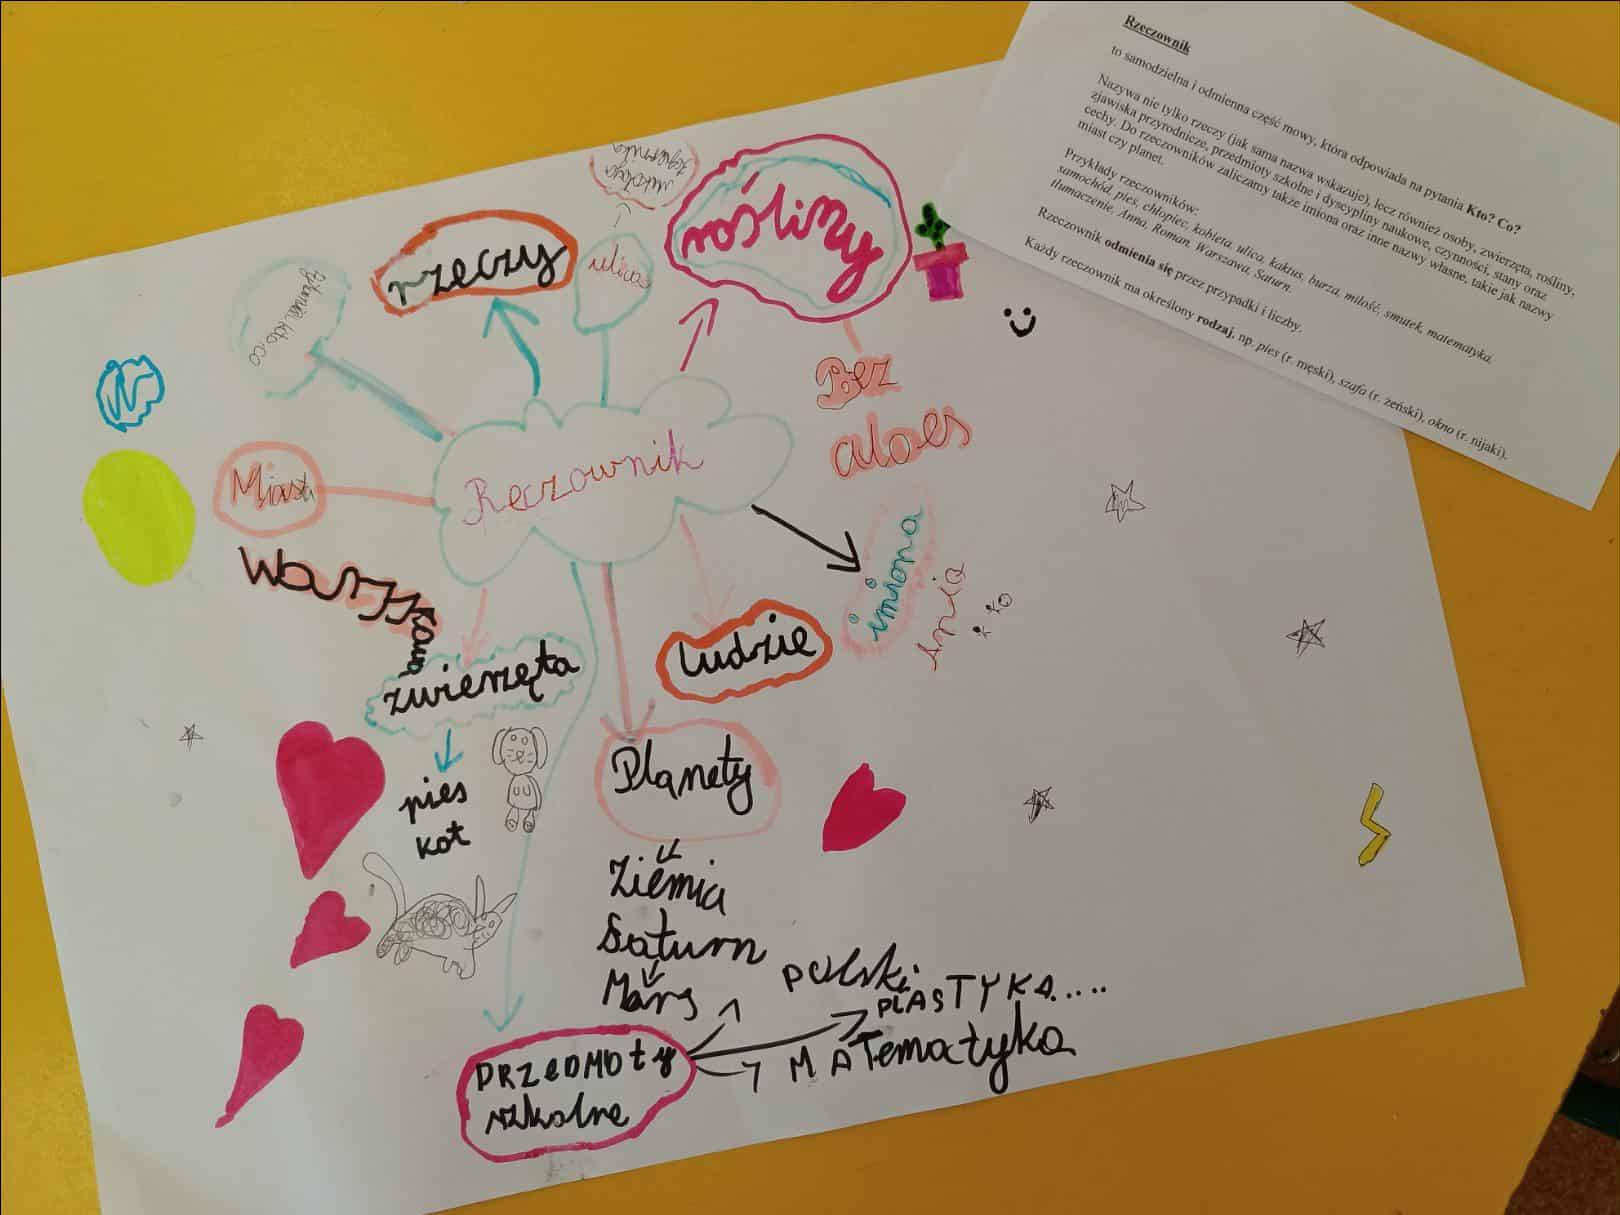 Rzeczownik
to samodzielna i odmienna część mowy, która odpowiada na pytania Kto? Co?
Nazywa nie tylko rzeczy (jak sama nazwa wskazuje), lecz również osoby, zwierzęta, rośliny,
zjawiska przyrodnicze, przedmioty szkolne i dyscypliny naukowe, czynności, stany oraz
cechy. Do rzeczowników zaliczamy także imiona oraz inne nazwy własne, takie jak nazwy
miast czy planet.
Przykłady rzeczowników:
samochód, pies, chłopiec, kobieta, ulica, kaktus, burza, miłość, smutek, matematyka,
tłumaczenie, Anna, Roman, Warszawa, Saturn.
Rzeczownik odmienia się przez przypadki i liczby.
Każdy rzeczownik ma określony rodzaj, np. pies (r. męski), szafa (r. żeński), okno (r. nijaki).
rośliny
rzeczy
ulica
kto: co
Bez
aloes
Ręczownik
Miasta
Warszkawa
imiona
zwierzęta
ludzie
pies
kot
Planety
Ziemia
Saturn
Mars
PRZEDMOty
szkolne
POlski
PLASTYKA.....
MATematyka